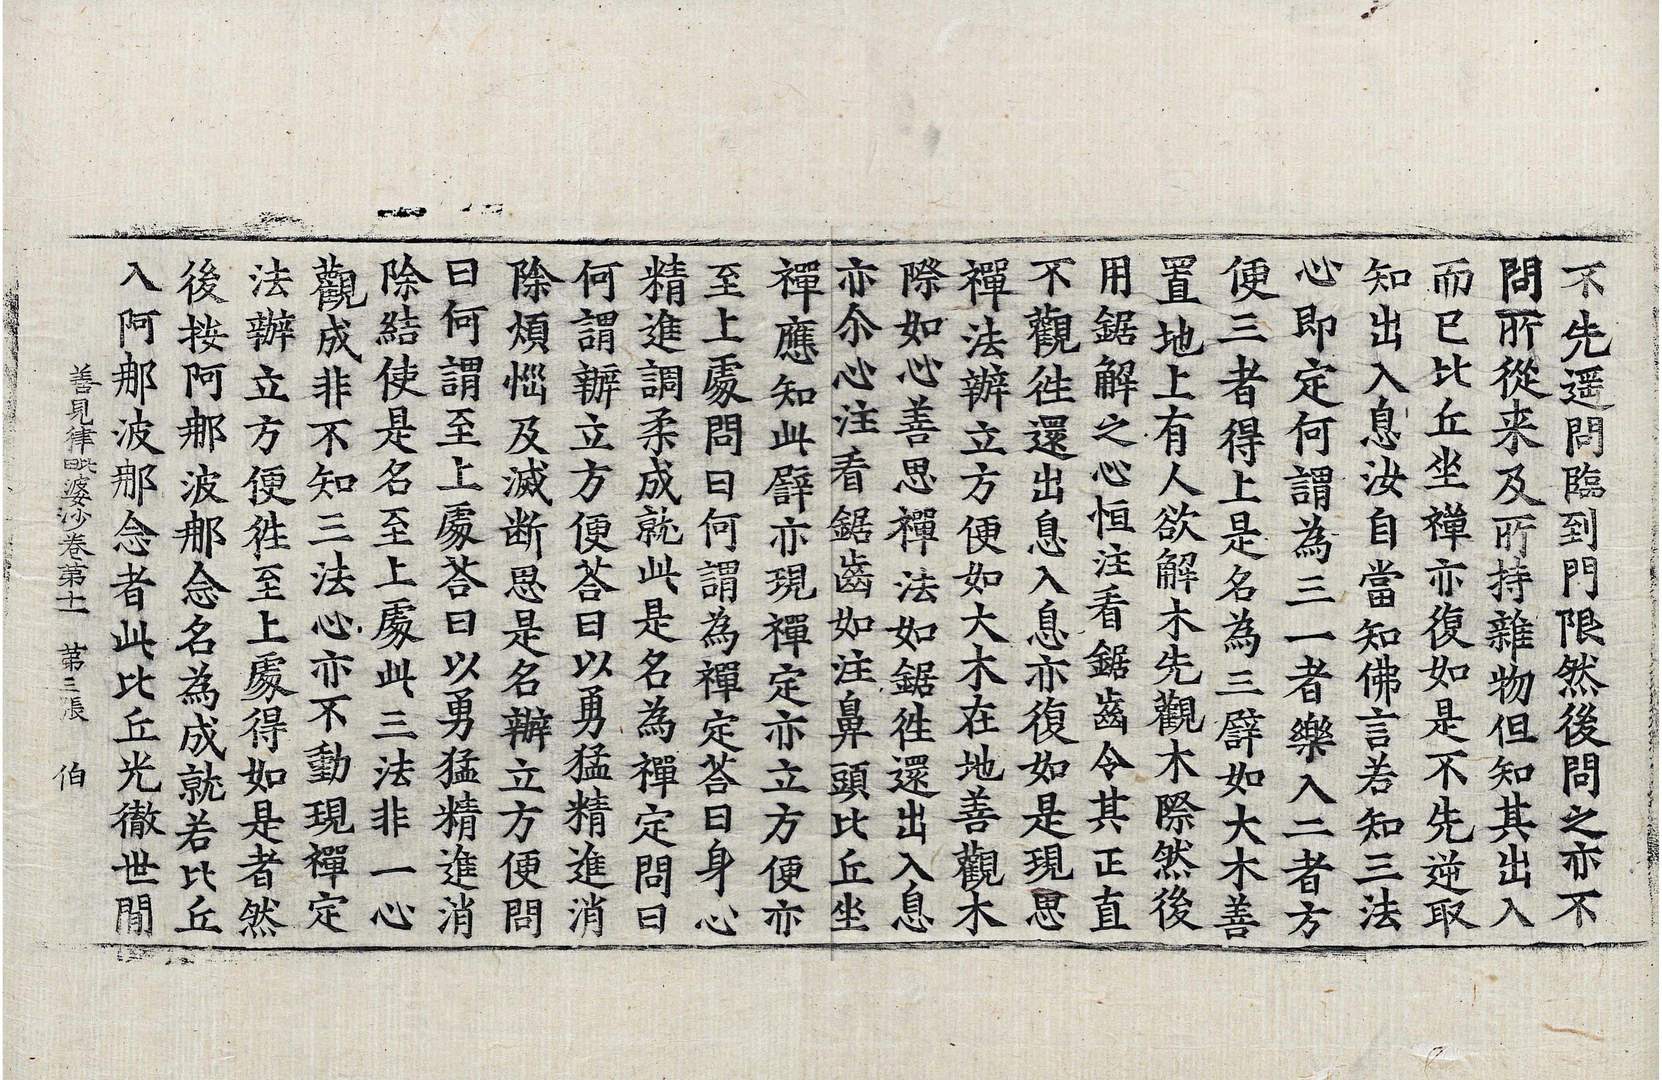 不先遥問臨到門限然後問之亦不
問所從来及所持雜物但知其出入
而已比丘坐禪亦復如是不先逆取
知出入息汝自當知佛言若知三法
心即定何謂為三一者樂入二者方
便三者得上是名為三譬如大木善
置地上有人欲解木先觀木際然後
用鋸解之心恒注看鋸齒令其正直
不觀徃還出息入息亦復如是現思
禪法辦立方便如大木在地善觀木
際如心善思禪法如鋸徃還出入息
亦尒心注看鋸齒如注鼻頭比丘坐
禪應知此譬亦現禪定亦立方便亦
至上處問曰何謂為禪定荅曰身心
精進調柔成就此是名為禪定問曰
何謂辦立方便荅曰以勇猛精進消
除煩惱及滅断思是名辦立方便問
曰何謂至上處荅曰以勇猛精進消
除結使是名至上處此三法非一心
觀成非不知三法心亦不動現禪定
法辦立方便徃至上處得如是者然
後按阿那波那念名為成就若比丘
入阿那波那念者此比丘光徹世間
善見律毗婆沙卷第十一 第三張 伯